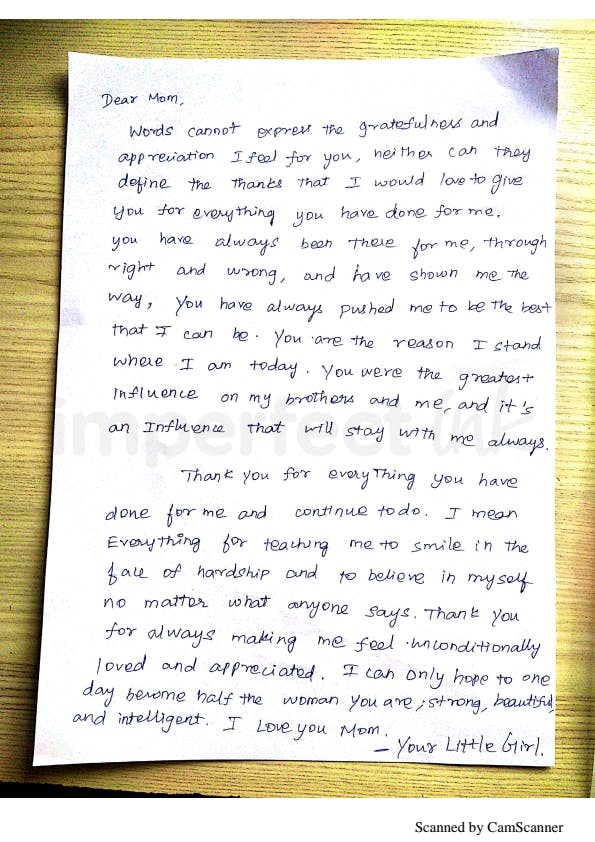 Dear Mom,
Words cannot express the gratefulness and
appreviation I feel for you, neither can they
define the thanks that I would love to give
you for everything you have done for me.
you have always been there for me, through
right and wrong, and have shown me the
way, you have always pushed me to be the best
that I can be. You are the reason I stand
where I am today. You were the greatest
influence on my brothers and me, and it's
an Influence that will stay with me always.
imperfect ink
Thank you for everything you have
done for me and continue to do. I mean
Everything for teaching me to smile in the
face of hardship and to believe in myself
no matter what anyone says. Thank you
for always making me feel unconditionally
loved and appreciated. I can only hope to one
day become half the woman you are; strong, beautiful,
and intelligent. I Love you Mom.
- Your Little Girl.
Scanned by CamScanner